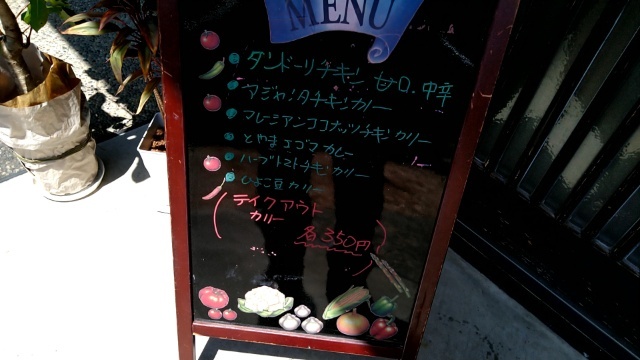 MENU
タンドーリチキン 甘口、中辛
アジャンタチキンカレー
マレーシアンココナッツチキンカリー
とやまエゴマカレー
ハーブトマトチキンカリー
ひよこ豆カリー
テイクアウト
カリー
各350円